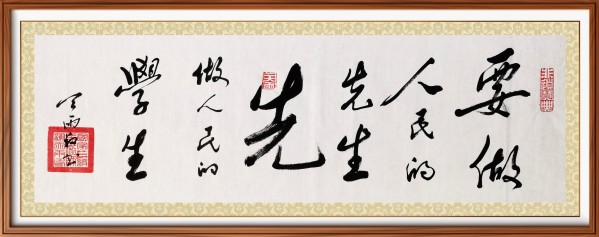 要做
人民的
先生
先
做人民的
學生